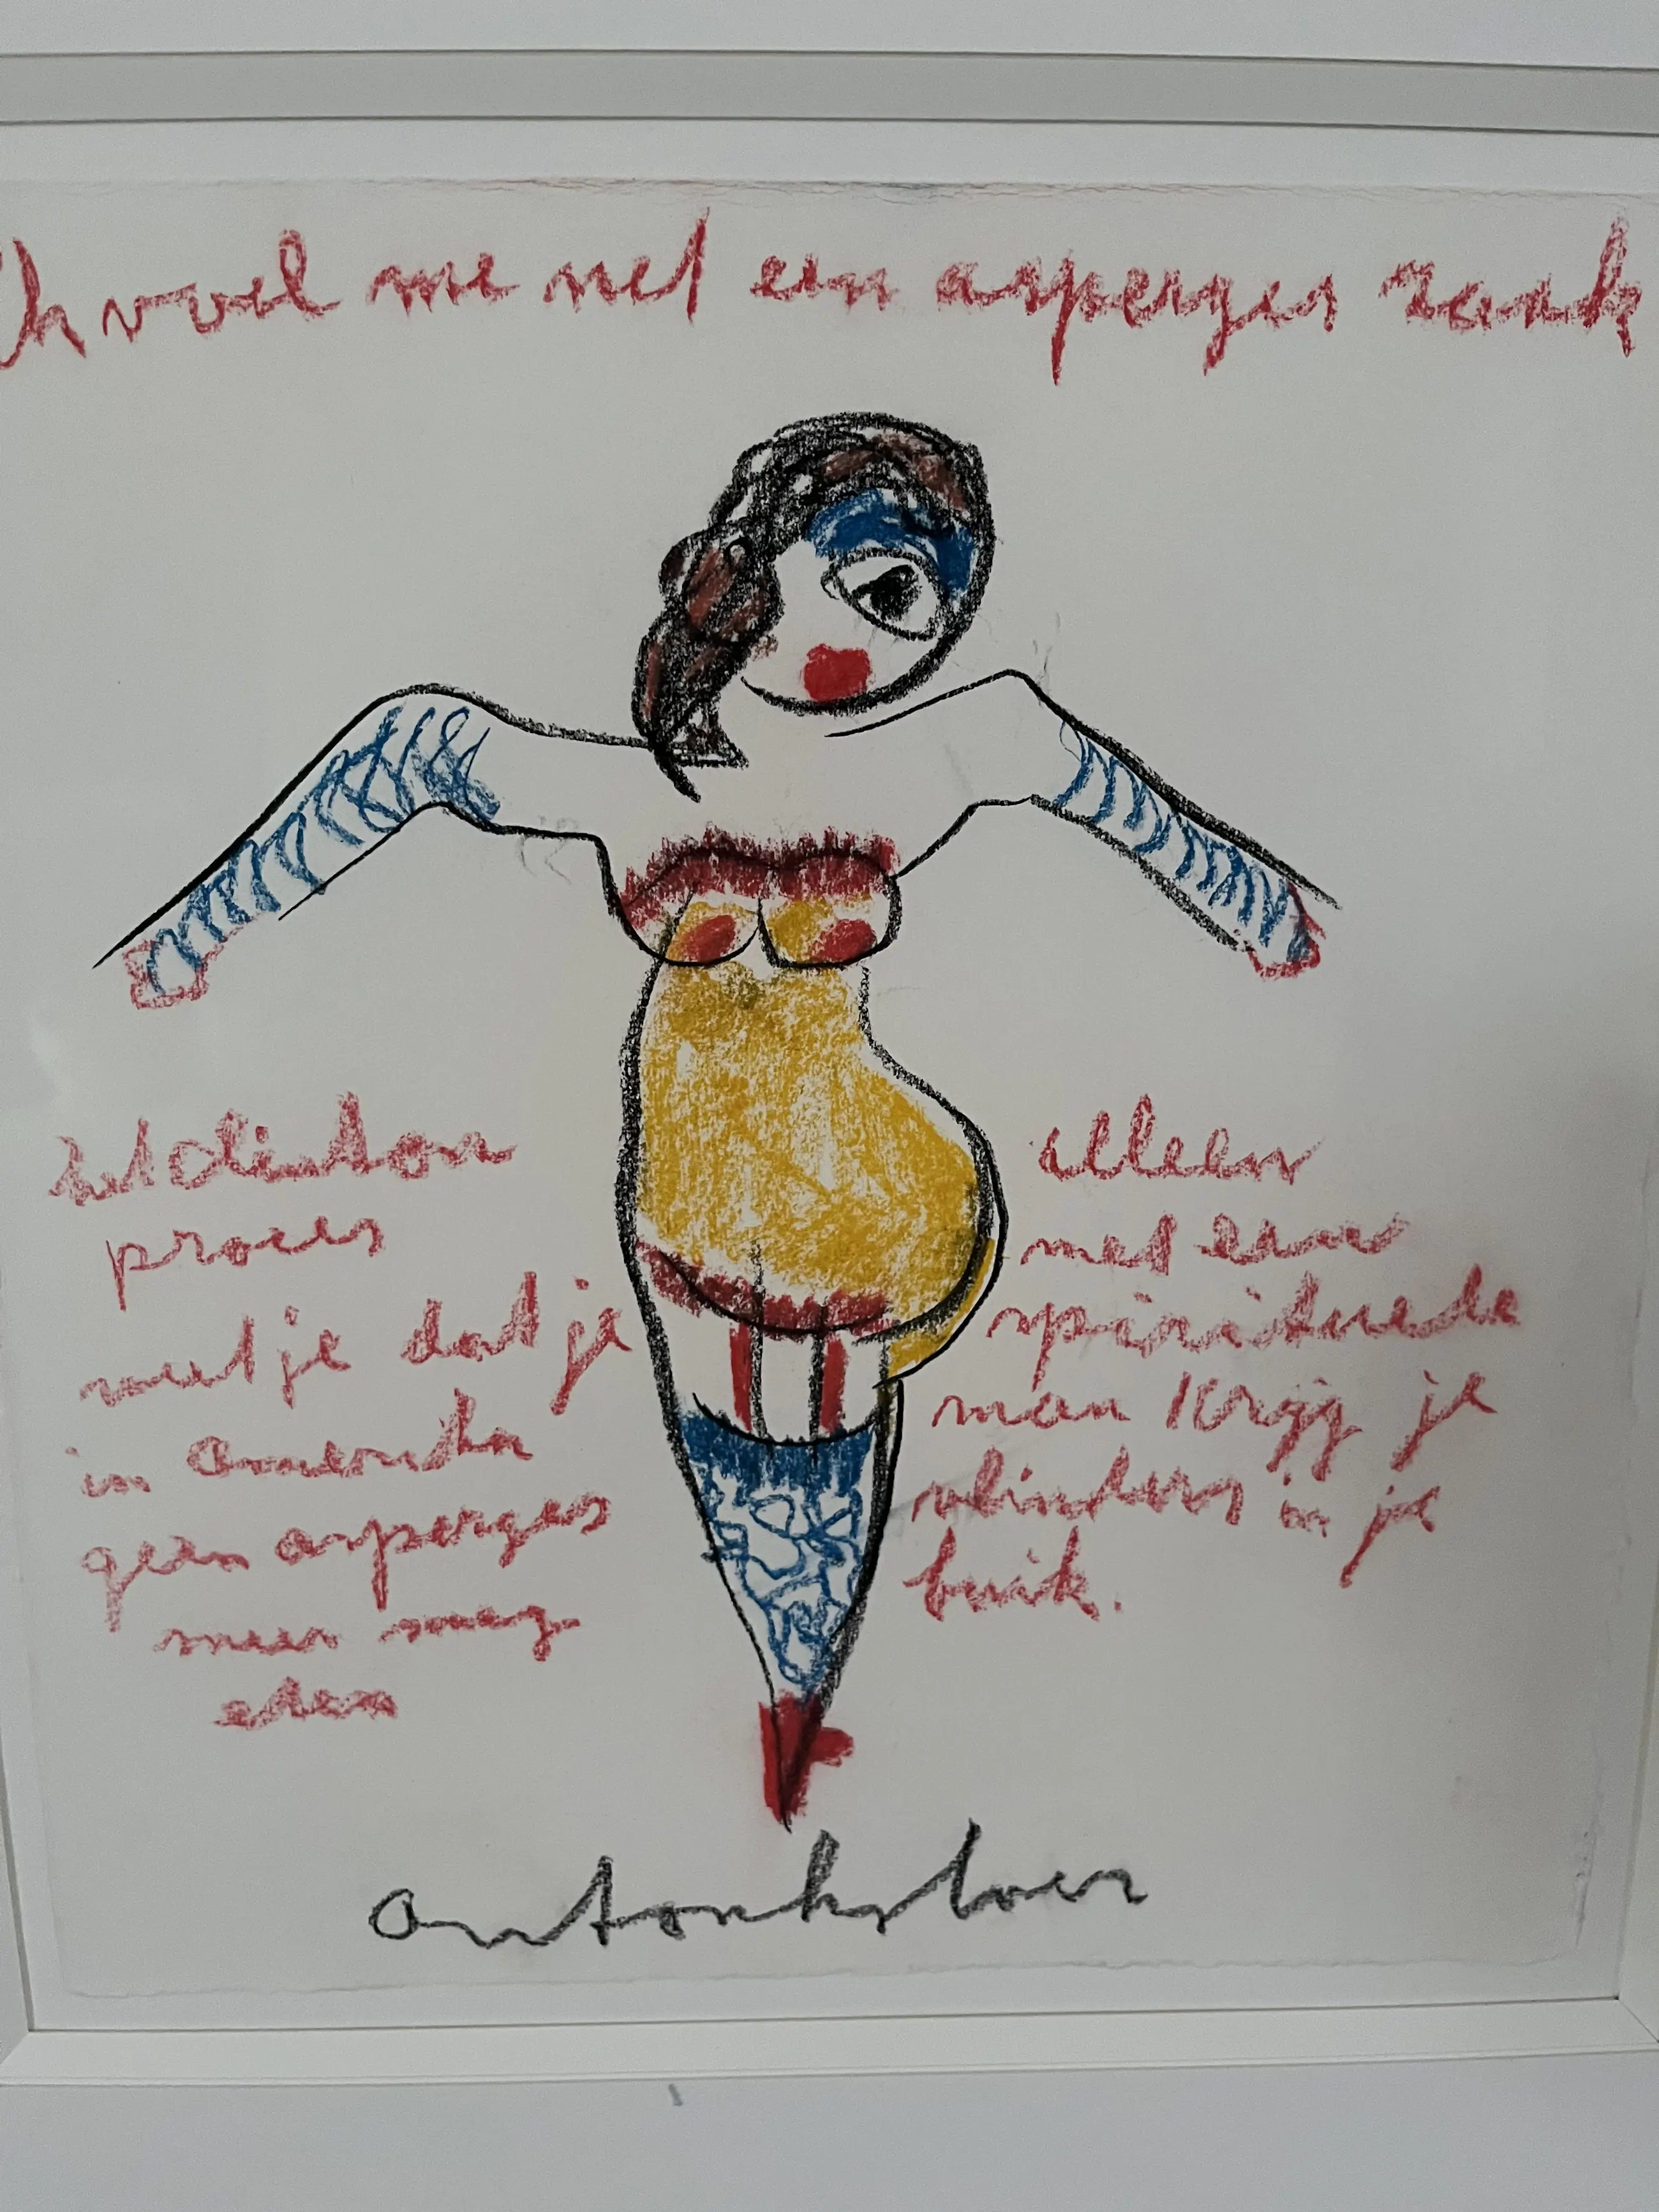 Ik voel me net een asperges zaak
het Clinton
proces
weet je dat je
in Amerika
geen asperges
meer mag
eten
alleen
met een
spirituele
man krijg je
vlinders in je
buik.